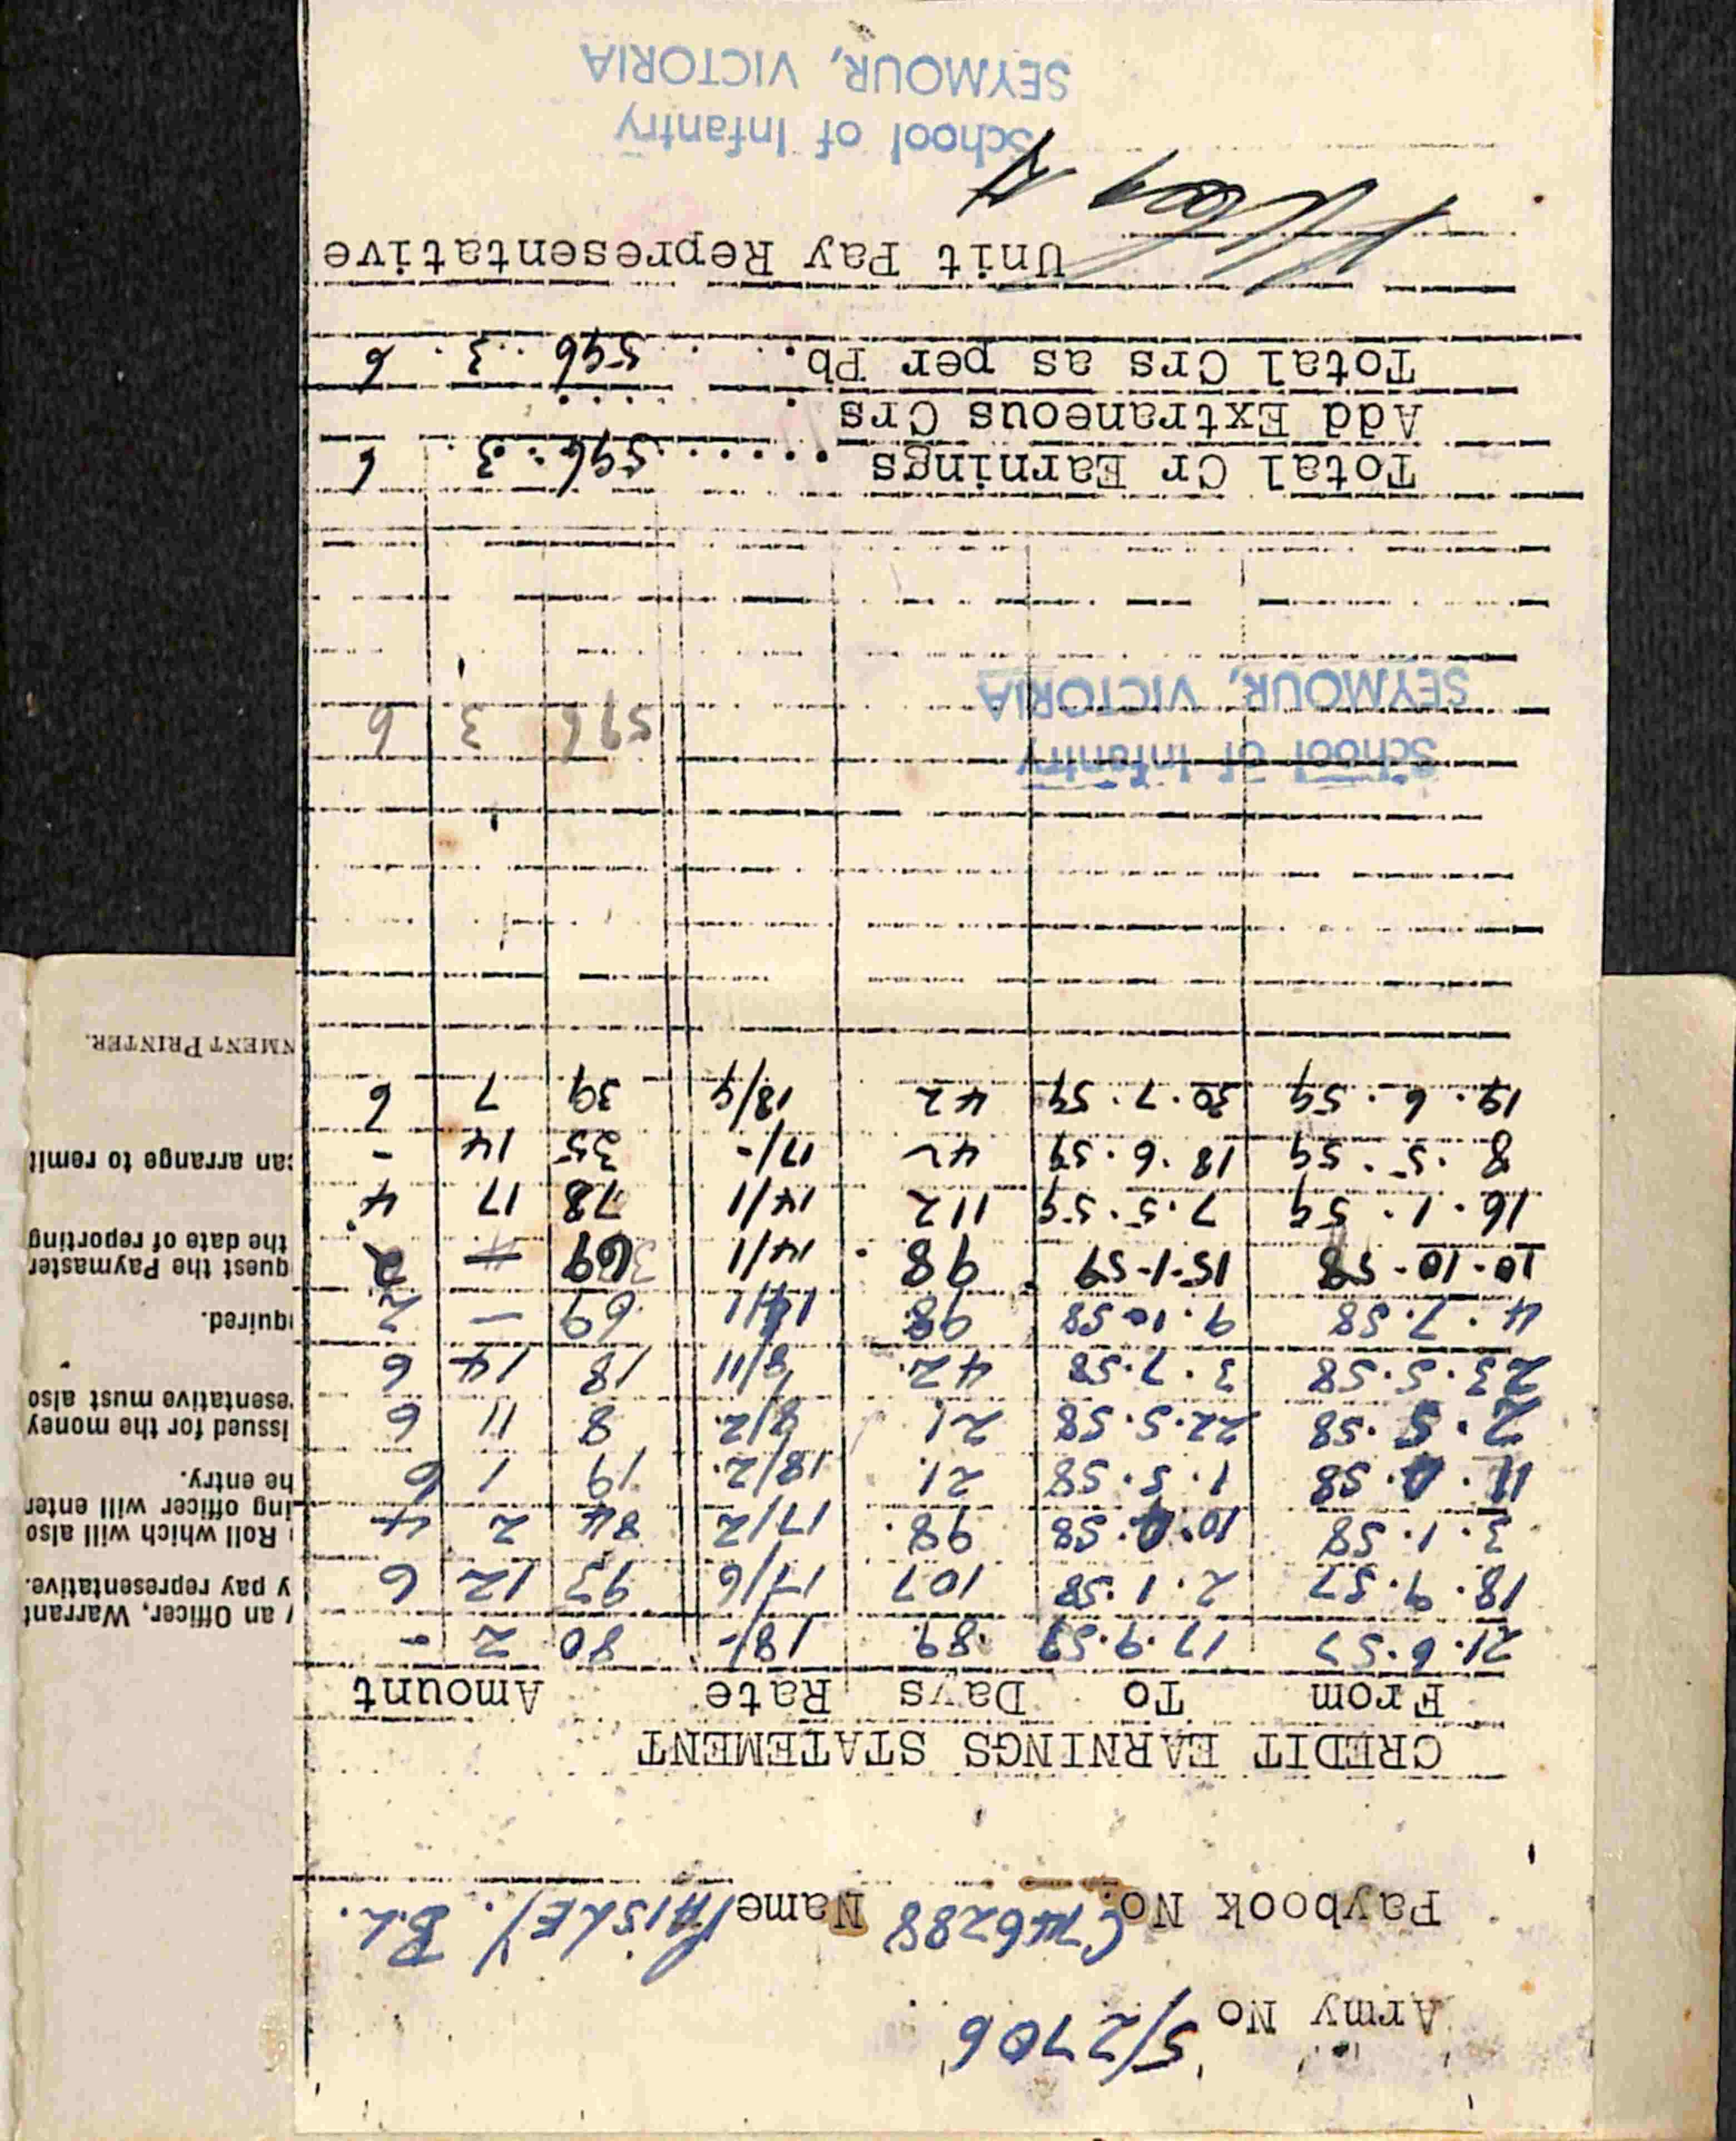 Army No 5/2706
Paybook No. C746288 Name PAISLEY. B.L.
CREDIT EARNINGS STATEMENT
From To Days Rate Amount
21.6.57 17.9.57 89 18/- 80 2 -
18.9.57 2.1.58 107 17/6 93 12 6
3.1.58 10.4.58 98 17/2 84 2 4
11.4.58 1.5.58 21 18/2 19 1 6
2.5.58 22.5.58 21 8/2 8 11 6
23.5.58 3.7.58 42 8/11 18 14 6
4.7.58 9.10.58 98 14/1 69 - 2
10.10.58 15.1.59 98 14/1 69 - 2
16.1.59 7.5.59 112 14/1 78 17 4
8.5.59 18.6.59 42 17/- 35 14 -
19.6.59 30.7.59 42 18/9 39 7 6
School of Infantry
SEYMOUR, VICTORIA
596 3 6
Total Cr Earnings 596 3 6
Add Extraneous Crs
Total Crs as per Pb. 596 3 6
Unit Pay Representative
School of Infantry
SEYMOUR, VICTORIA
an Officer, Warrant
y pay representative.
Roll which will also
ing officer will enter
he entry.
issued for the money
esentative must also
quired.
quest the Paymaster
the date of reporting
can arrange to remit
NMENT PRINTER.